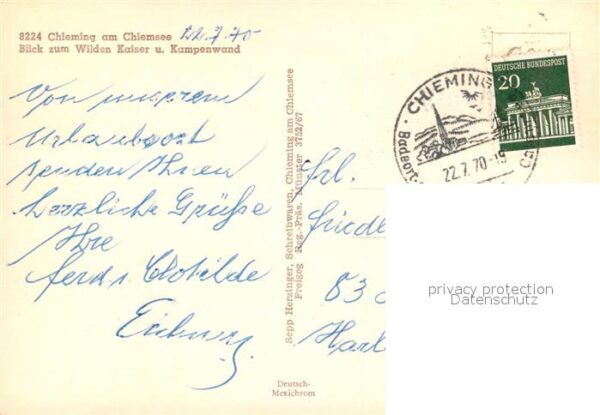 8224 Chieming am Chiemsee 22.7.70
Blick zum Wilden Kaiser u. Kampenwand
Von unserem
Urlaubsort
senden Ihnen
herzliche Grüße
Ihre
Clothilde
Sepp Hersinger, Schreibwaren, Chieming am Chiemsee
Freigeg. Reg.-Präs. Münster 3752/67
Deutsch-
Mexichrom
CHIEMING
Badeort
22.7.70-15
DEUTSCHE BUNDESPOST
20
Frl.
83
privacy protection
Datenschutz